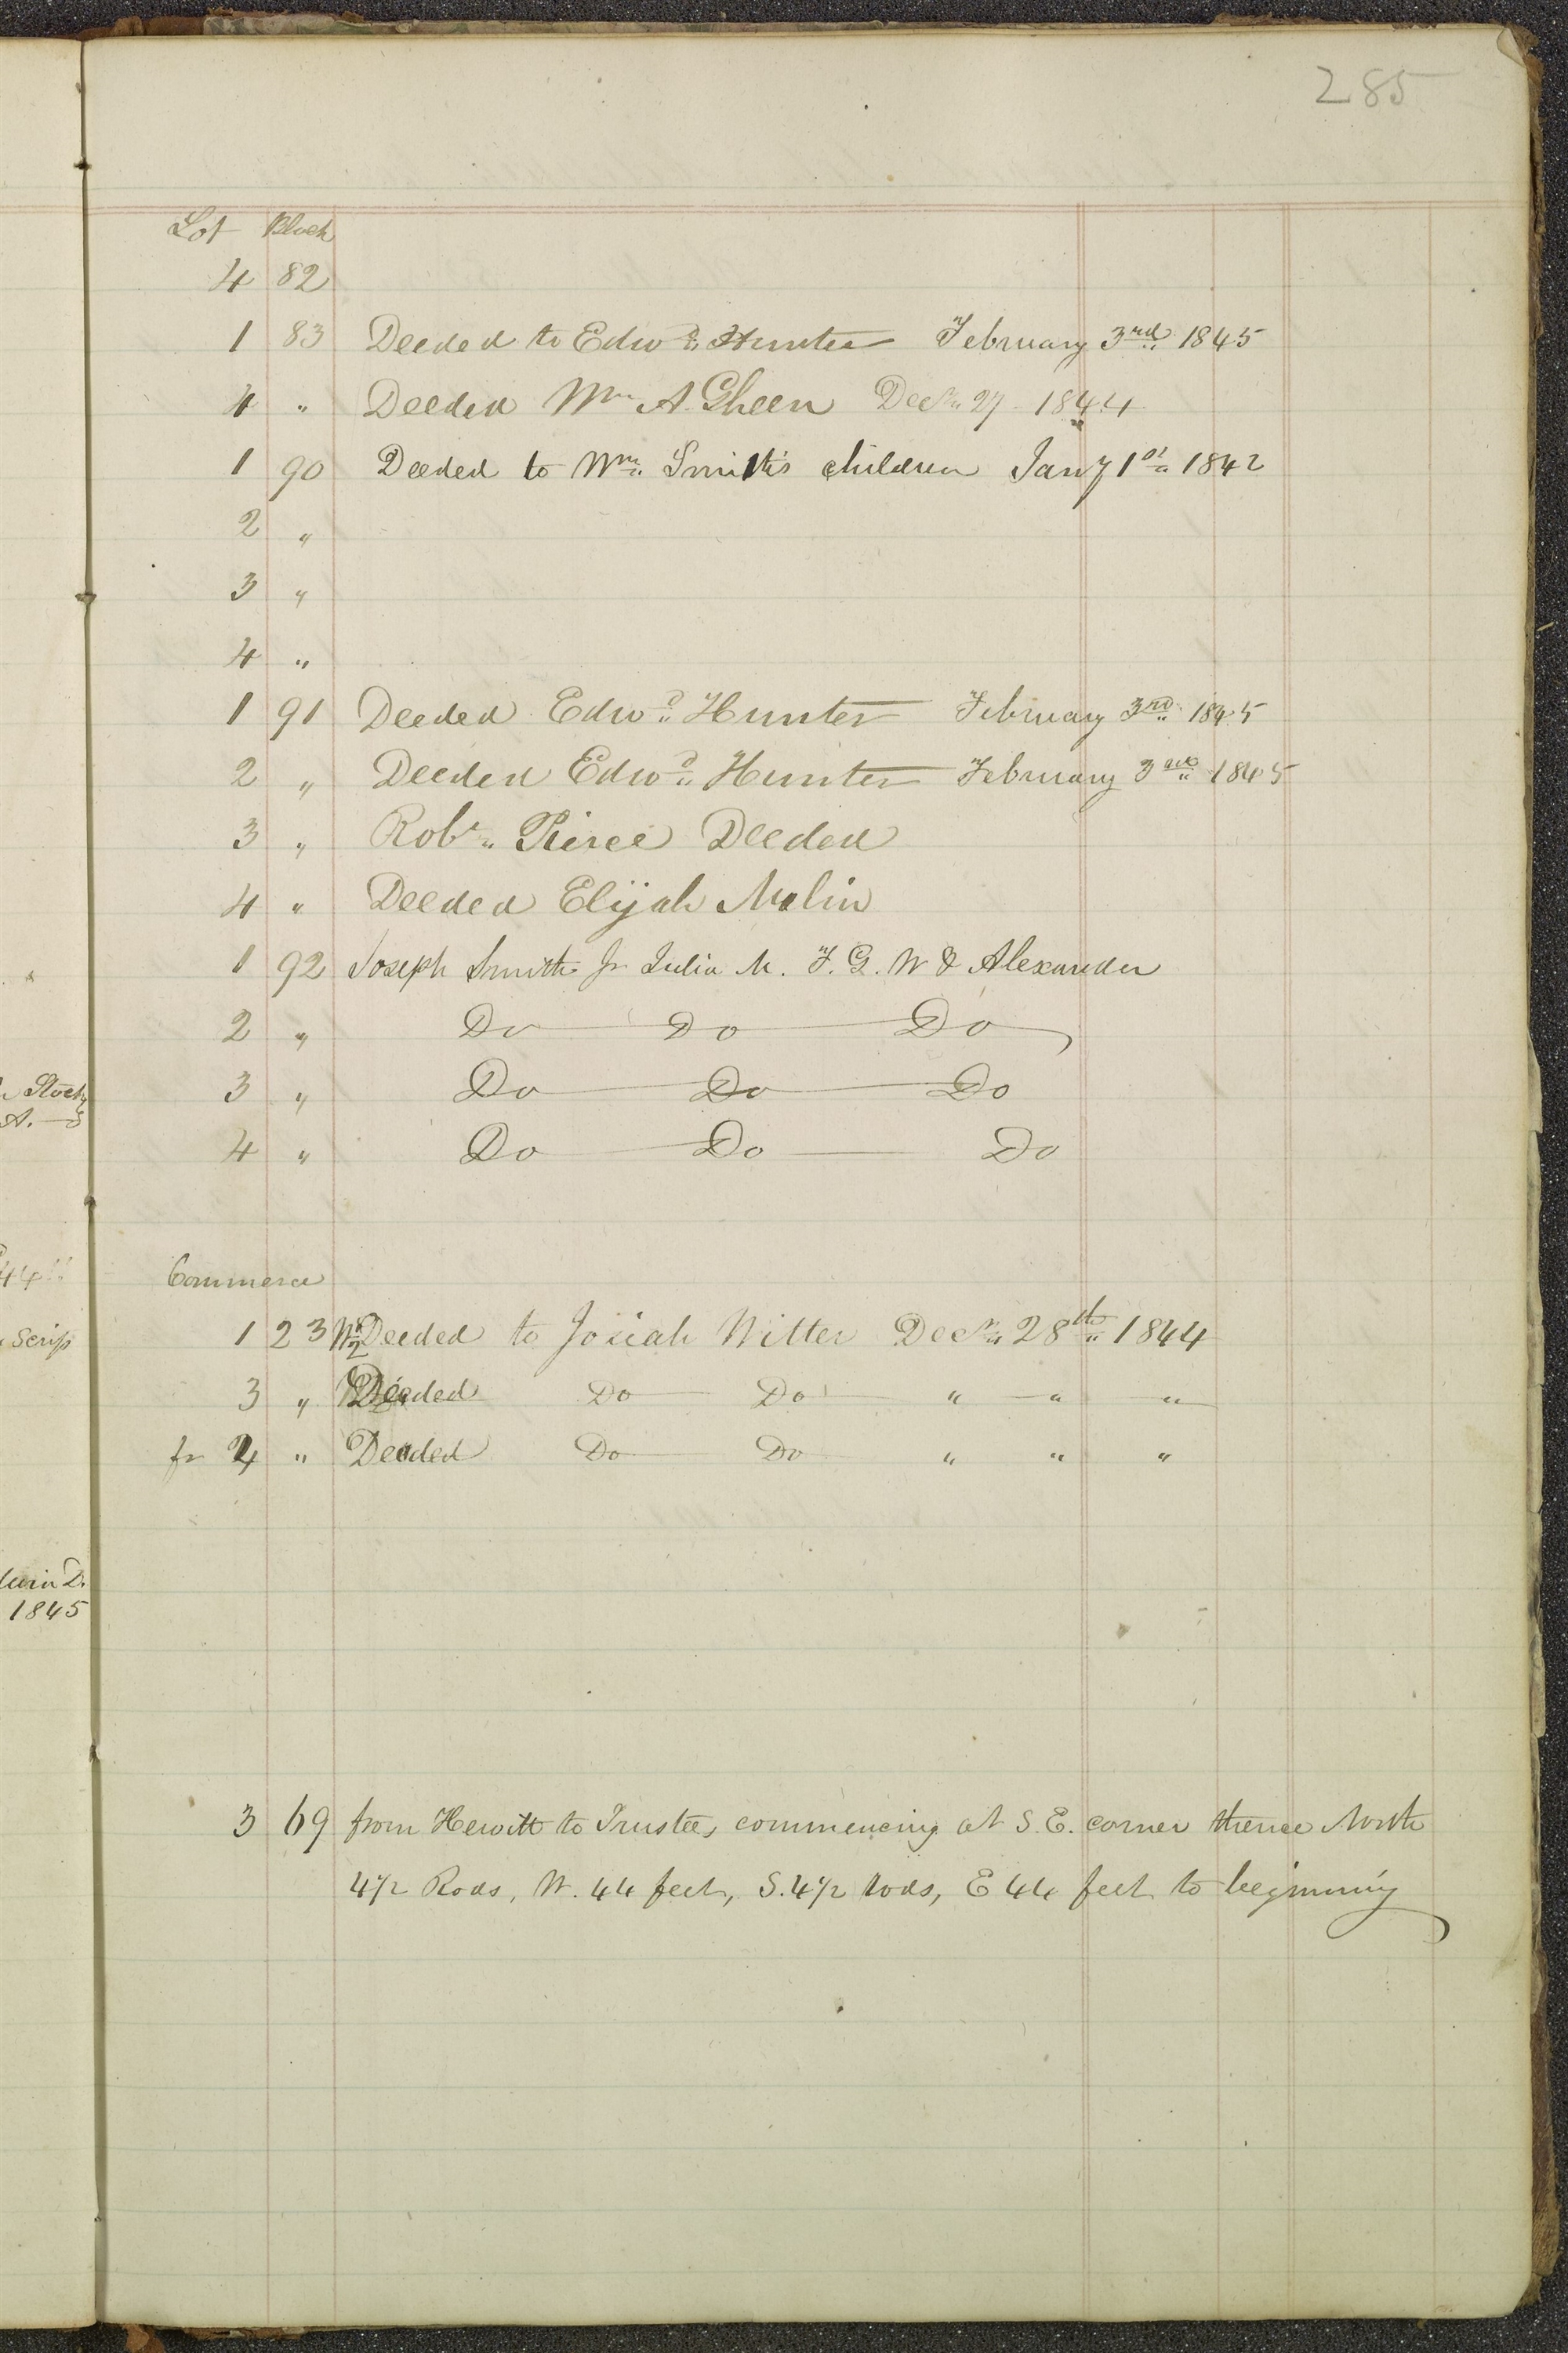 285
Lot Block
4 82
1 83 Deeded to Edwd. Hunter February 3rd. 1845
4 " Deeded Wm A. Gheen Decr. 27 1844
1 90 Deeded to Wm. Smith's children Jany 1st. 1842
2 "
3 "
4 "
1 91 Deeded Edwd. Hunter February 3rd. 1845
2 " Deeded Edwd. Hunter February 3rd. 1845
3 " Robt. Pierce Deeded
4 " Deeded Elijah Malin
1 92 Joseph Smith Jr Julia M. F. G. W & Alexander
2 " Do Do Do
3 " Do Do Do
4 " Do Do Do
Commerce
1 23 W½ Deeded to Josiah Witter Decr. 28th. 1844
3 " Deeded Do Do " " "
fr 4 " Deeded Do Do " " "
3 69 from Hewitt to Trustee, commencing at S.E. corner thence North
4½ Rods, W. 44 feet, S. 4½ rods, E 44 feet to beginning
Stock
A.
44
Scrip
win D.
1845